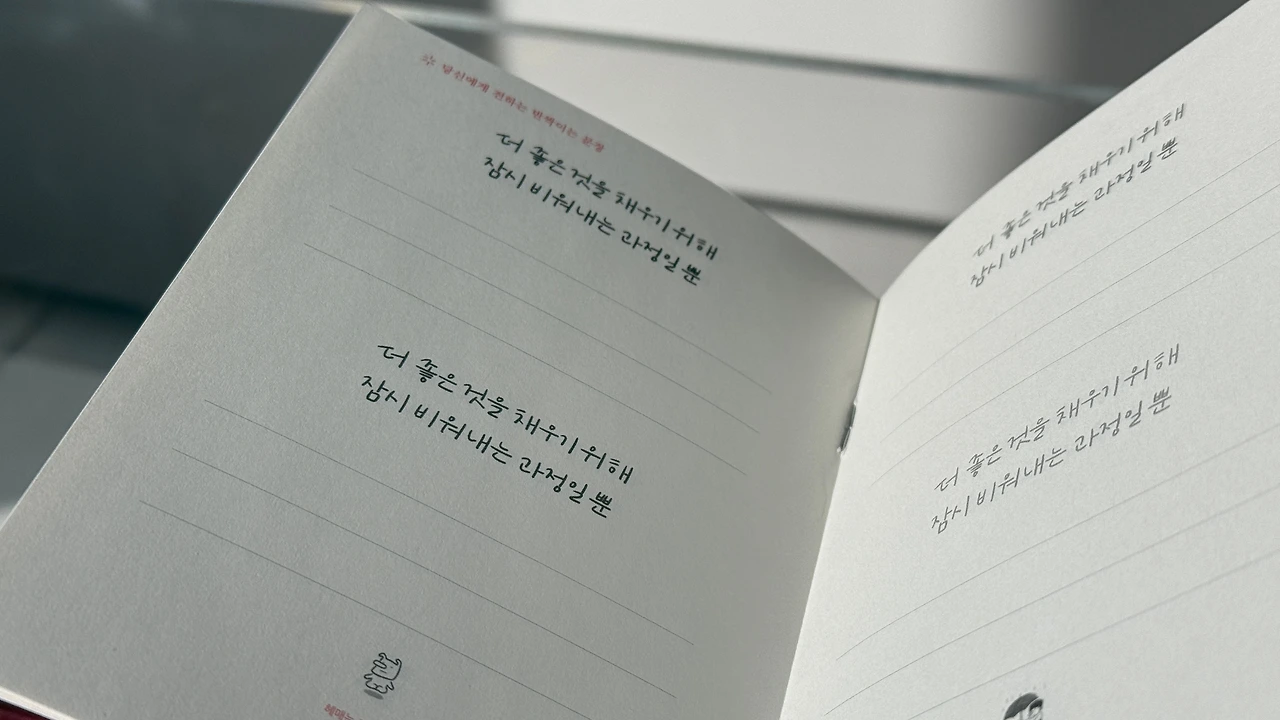 당신에게 전하는 반짝이는 문장
더 좋은 것을 채우기 위해
잠시 비워내는 과정일 뿐
더 좋은 것을 채우기 위해
잠시 비워내는 과정일 뿐
더 좋은 것을 채우기 위해
잠시 비워내는 과정일 뿐
더 좋은 것을 채우기 위해
잠시 비워내는 과정일 뿐